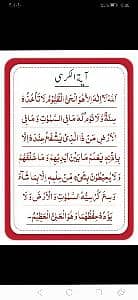 آیۃ الکرسی
اَللّٰهُ لَاۤ اِلٰهَ اِلَّا هُوَ اَلْحَیُّ الْقَیُّوْمُ لَا تَاْخُذُهٗ
سِنَةٌ وَّلَا نَوْمٌ لَهٗ مَا فِی السَّمٰوٰتِ وَمَا فِی
الْاَرْضِ مَنْ ذَا الَّذِیْ یَشْفَعُ عِنْدَهٗۤ اِلَّا
بِاِذْنِهٖ یَعْلَمُ مَا بَیْنَ اَیْدِیْهِمْ وَمَا خَلْفَهُمْ
وَلَا یُحِیْطُوْنَ بِشَیْءٍ مِّنْ عِلْمِهٖۤ اِلَّا بِمَا شَآءَ
وَسِعَ كُرْسِیُّهُ السَّمٰوٰتِ وَالْاَرْضَ وَلَا
یَـُٔوْدُهٗ حِفْظُهُمَا وَهُوَ الْعَلِیُّ الْعَظِیْمُ